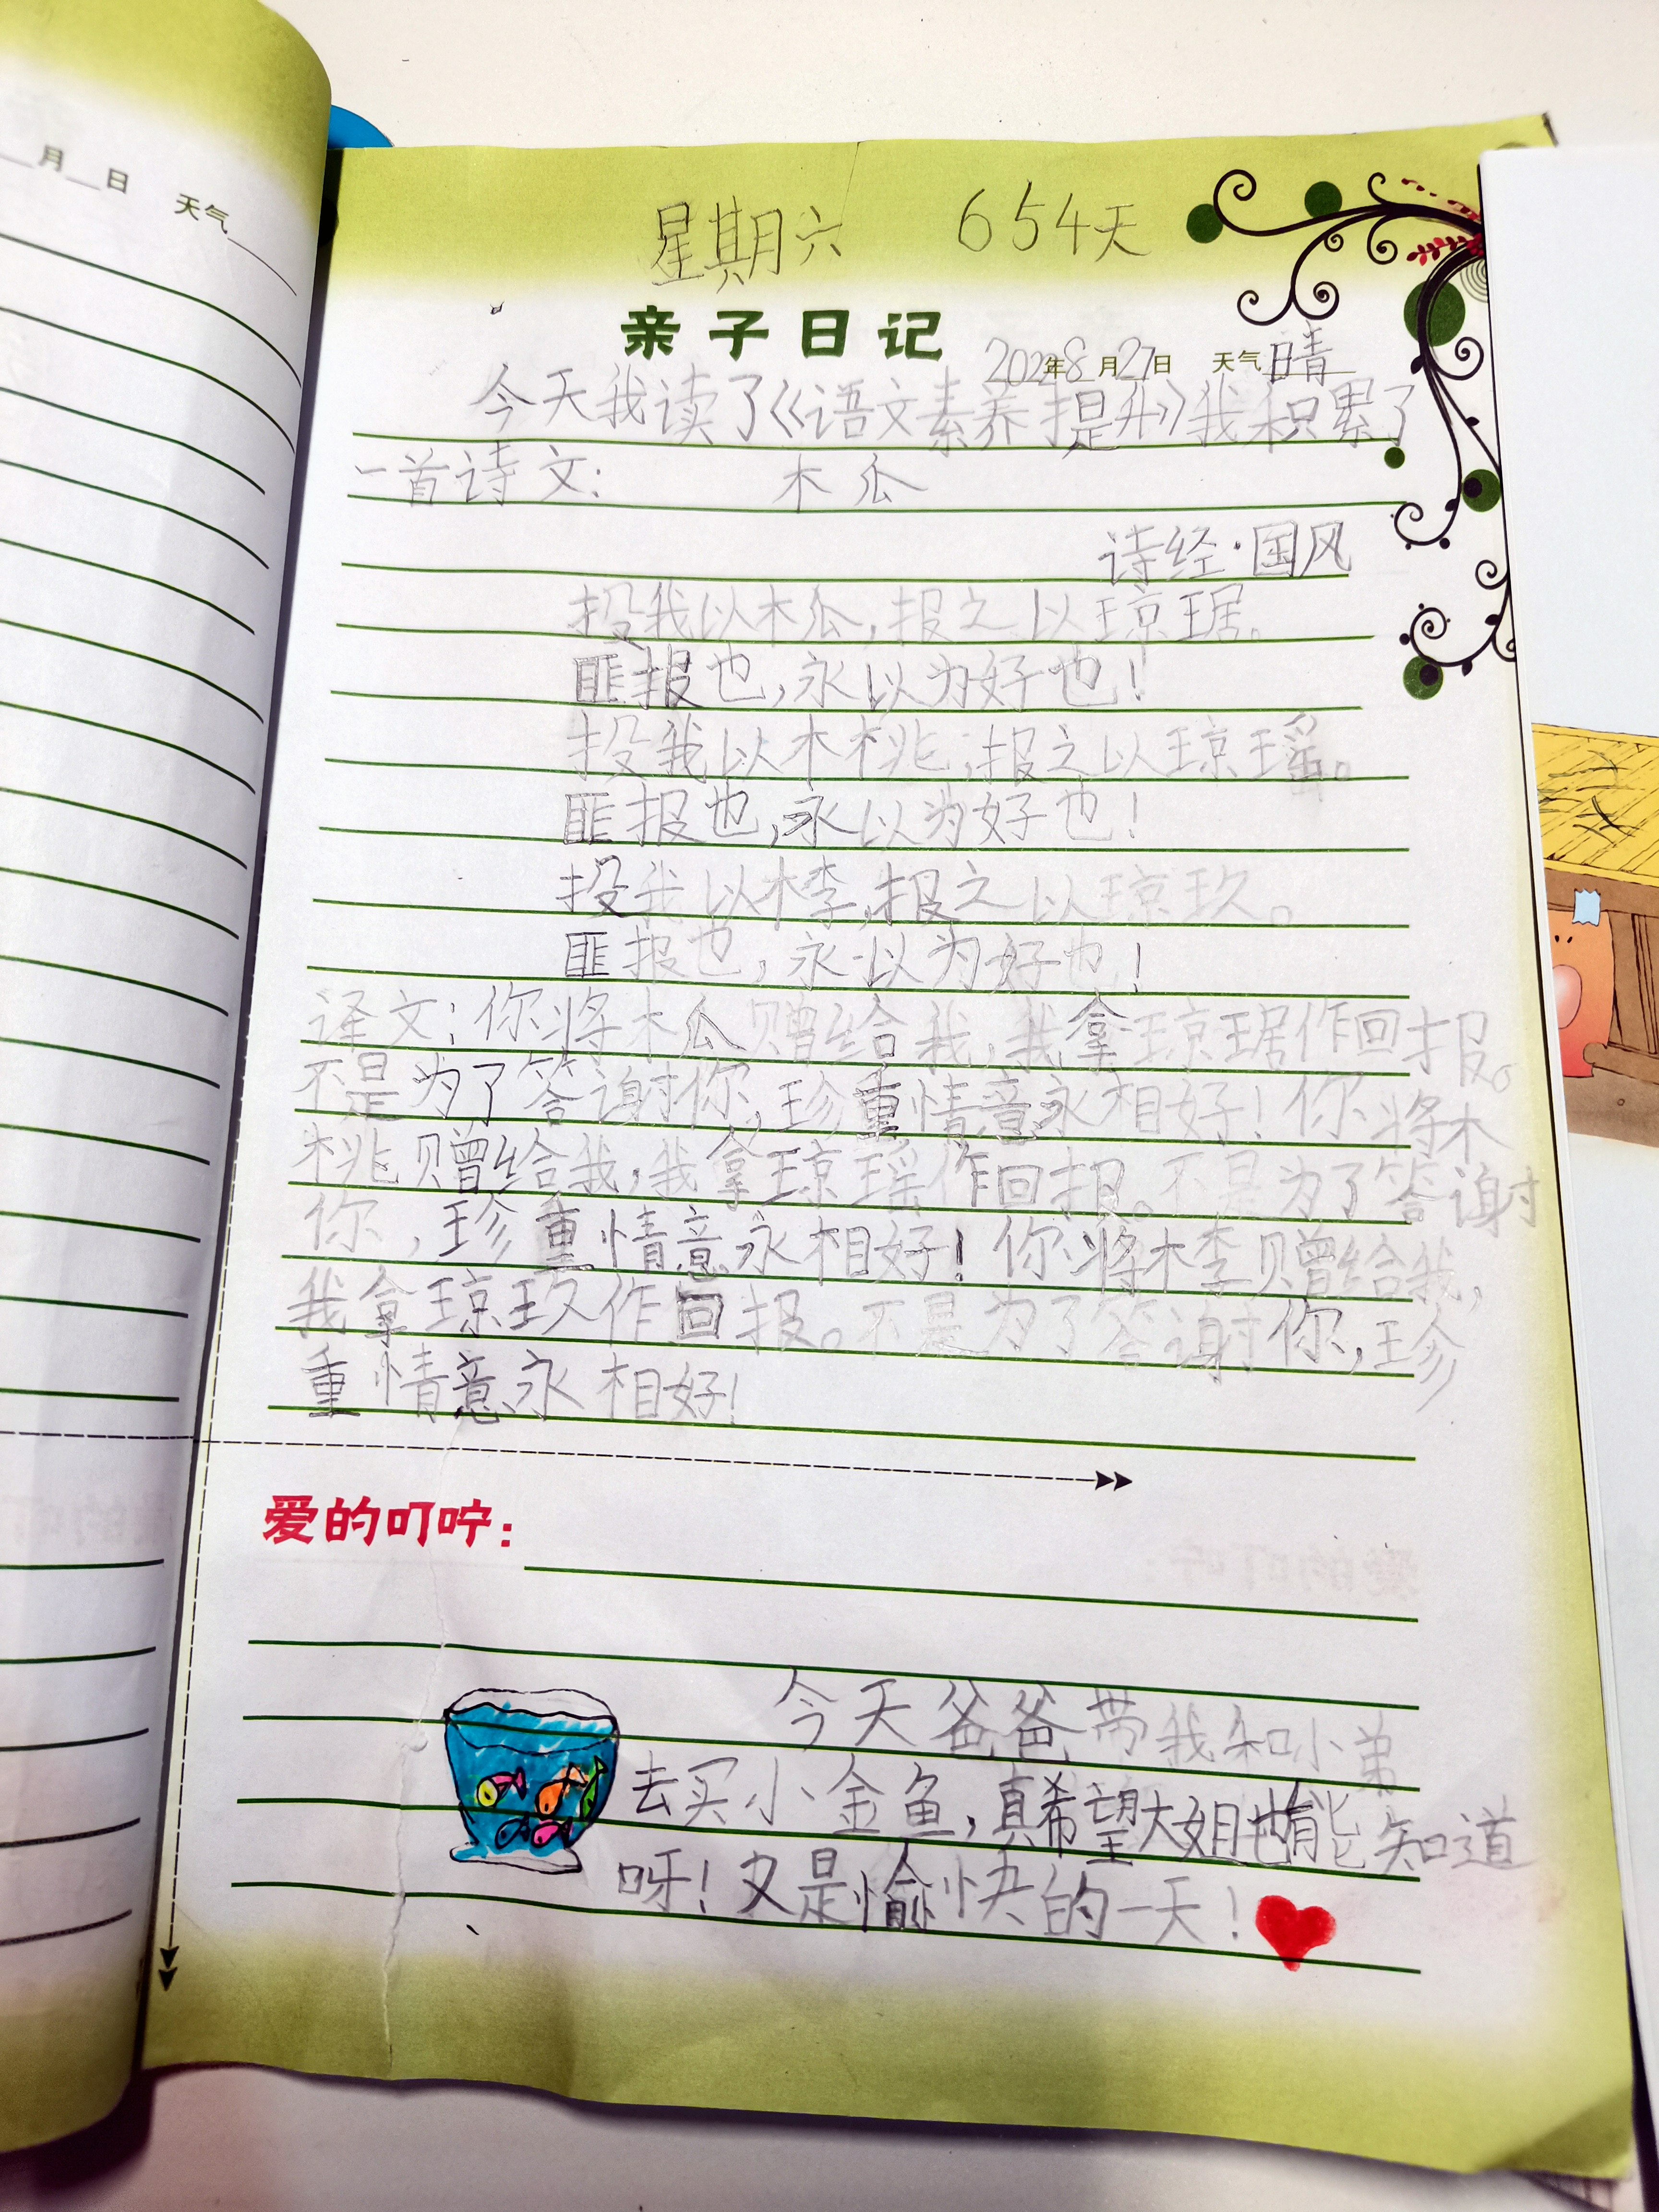 月 日 天气
星期六 654天
亲子日记 2022年8月27日 天气 晴
今天我读了《语文素养提升》我积累了
一首诗文: 木瓜
诗经·国风
投我以木瓜,报之以琼琚。
匪报也,永以为好也!
投我以木桃,报之以琼瑶。
匪报也,永以为好也!
投我以木李,报之以琼玖。
匪报也,永以为好也!
译文:你将木瓜赠给我,我拿琼琚作回报。
不是为了答谢你,珍重情意永相好!你将木
桃赠给我,我拿琼瑶作回报。不是为了答谢
你,珍重情意永相好!你将木李赠给我,
我拿琼玖作回报。不是为了答谢你,珍
重情意永相好!
爱的叮咛:
今天爸爸带我和小弟
去买小金鱼,真希望大姐也能知道
呀!又是愉快的一天!